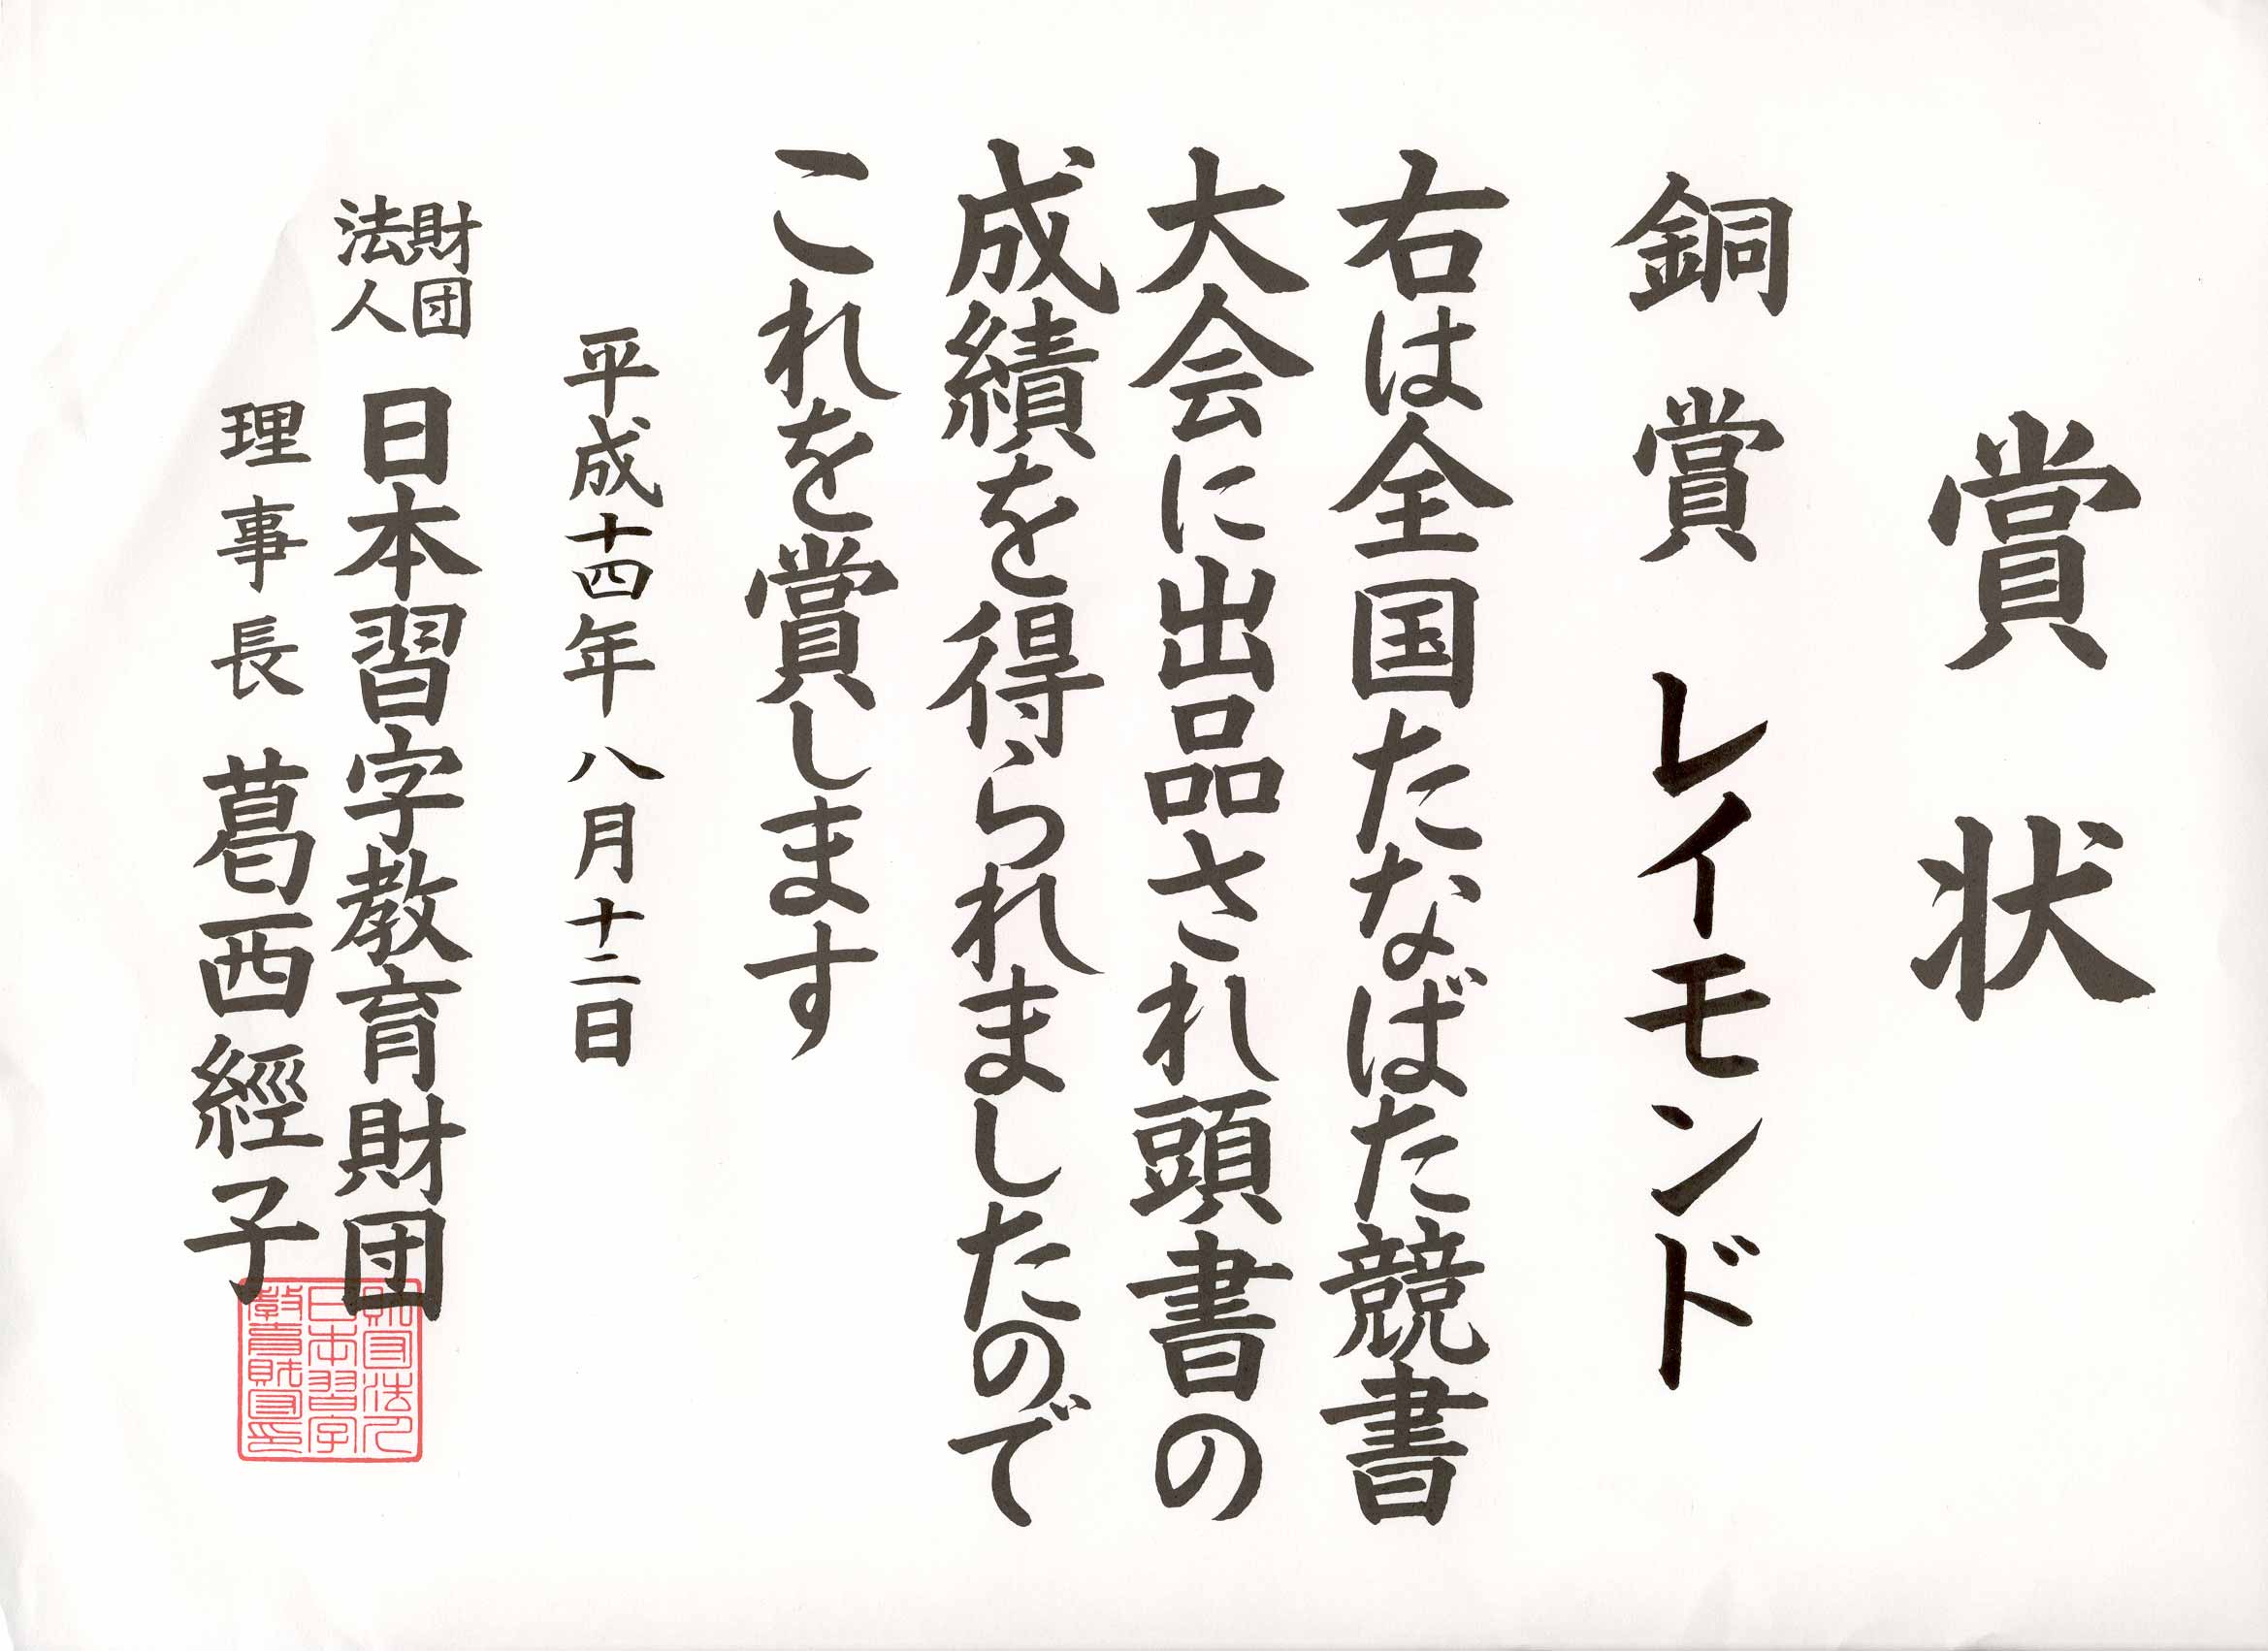 賞状
銅賞 レイモンド
右は全国たなばた競書
大会に出品され頭書の
成績を得られましたので
これを賞します
平成十四年八月十二日
財団法人 日本習字教育財団
理事長 葛西經子
財団法人
日本習字
教育財団印